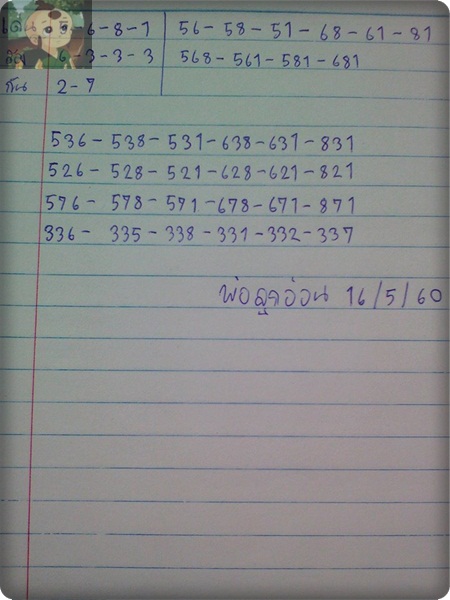 เด่น 5-6-8-1 56-58-51-68-61-81
6-3-3-3 568-561-581-681
กัน 2-7
536-538-531-638-631-831
526-528-521-628-621-821
576-578-571-678-671-871
336-335-338-331-332-337
16/5/60